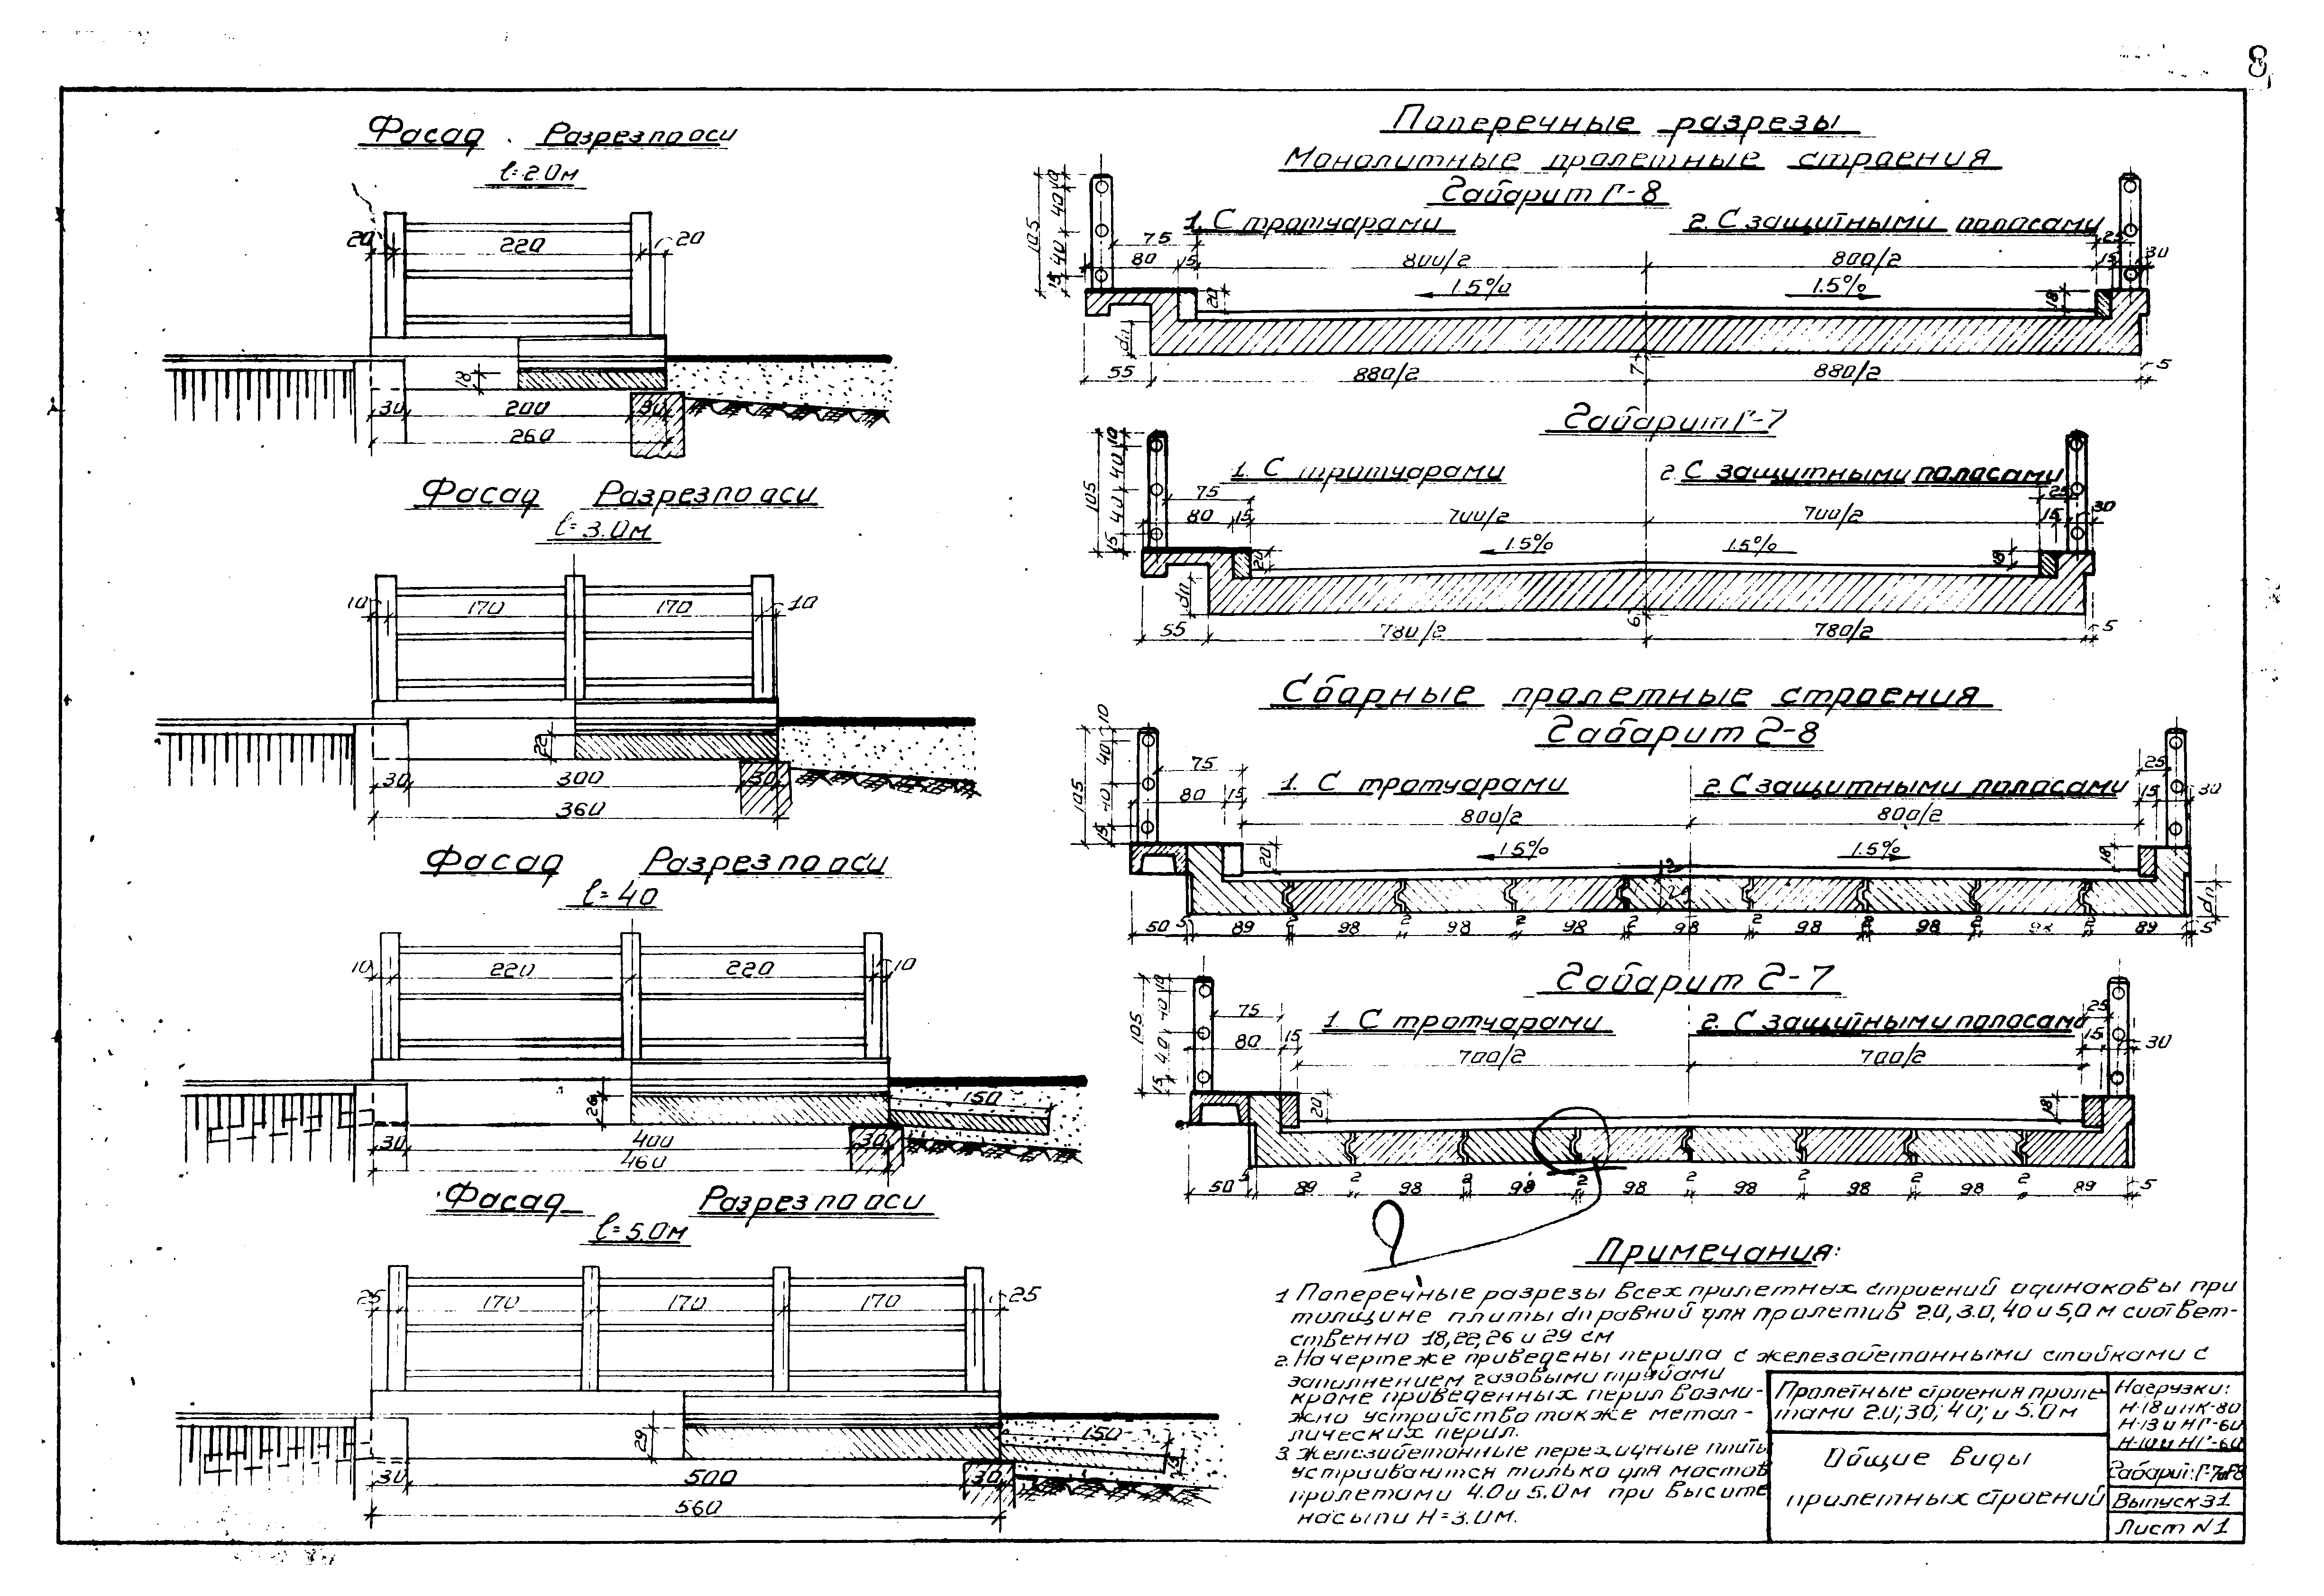 8
Фасад Разрез по оси
l=2.0м
20 220 20
18
30 200 30
260
Фасад Разрез по оси
l=3.0м
10 170 170 10
22
30 300 30
360
Фасад Разрез по оси
l=40
10 220 220 10
26 150
30 400 30
460
Фасад Разрез по оси
l=5.0м
25 170 170 170 25
29 150
30 500 30
560
Поперечные разрезы
Монолитные пролетные строения
Габарит Г-8
1. С тротуарами 2. С защитными полосами
105 10 40 40 15
75 25
80 15 800/2 800/2 15 30
20 1.5% 1.5% 18
dп
55 880/2 7 880/2 5
Габарит Г-7
1. С тротуарами 2. С защитными полосами
105 10 40 40 15
75 25
80 15 700/2 700/2 15 30
20 1.5% 1.5% 18
dп
55 780/2 6 780/2 5
Сборные пролетные строения
Габарит Г-8
105 10 40 40 15
75 25
1. С тротуарами 2. С защитными полосами
80 15 800/2 800/2 15 30
20 1.5% 1.5% 18
dп
50 5 89 2 98 2 98 2 98 2 98 2 98 2 98 2 98 2 89 5
Габарит Г-7
105 10 40 40 15
75 25
1. С тротуарами 2. С защитными полосами
80 15 700/2 700/2 15 30
20 18
50 5 89 2 98 2 98 2 98 2 98 2 98 2 98 2 89 5
Примечания:
1 Поперечные разрезы всех пролетных строений одинаковы при
толщине плиты dп равной для пролетов 2.0, 3.0, 4.0 и 5,0 м соответ-
ственно 18,22,26 и 29 см
2. На чертеже приведены перила с железобетонными стойками с
заполнением газовыми трубами
кроме приведенных перил возмо-
жно устройство также метал-
лических перил.
3. Железобетонные переходные плиты
устраиваются только для мостов
пролетами 4.0 и 5.0м при высоте
насыпи Н=3.0м.
Пролетные строения проле-
тами 2.0; 3.0; 4.0; и 5.0м
Общие виды
пролетных строений
Нагрузки:
Н-18 и НК-80
Н-13 и НГ-60
Н-10 и НГ-60
Габарит: Г-7 и Г-8
Выпуск 31
Лист N 1